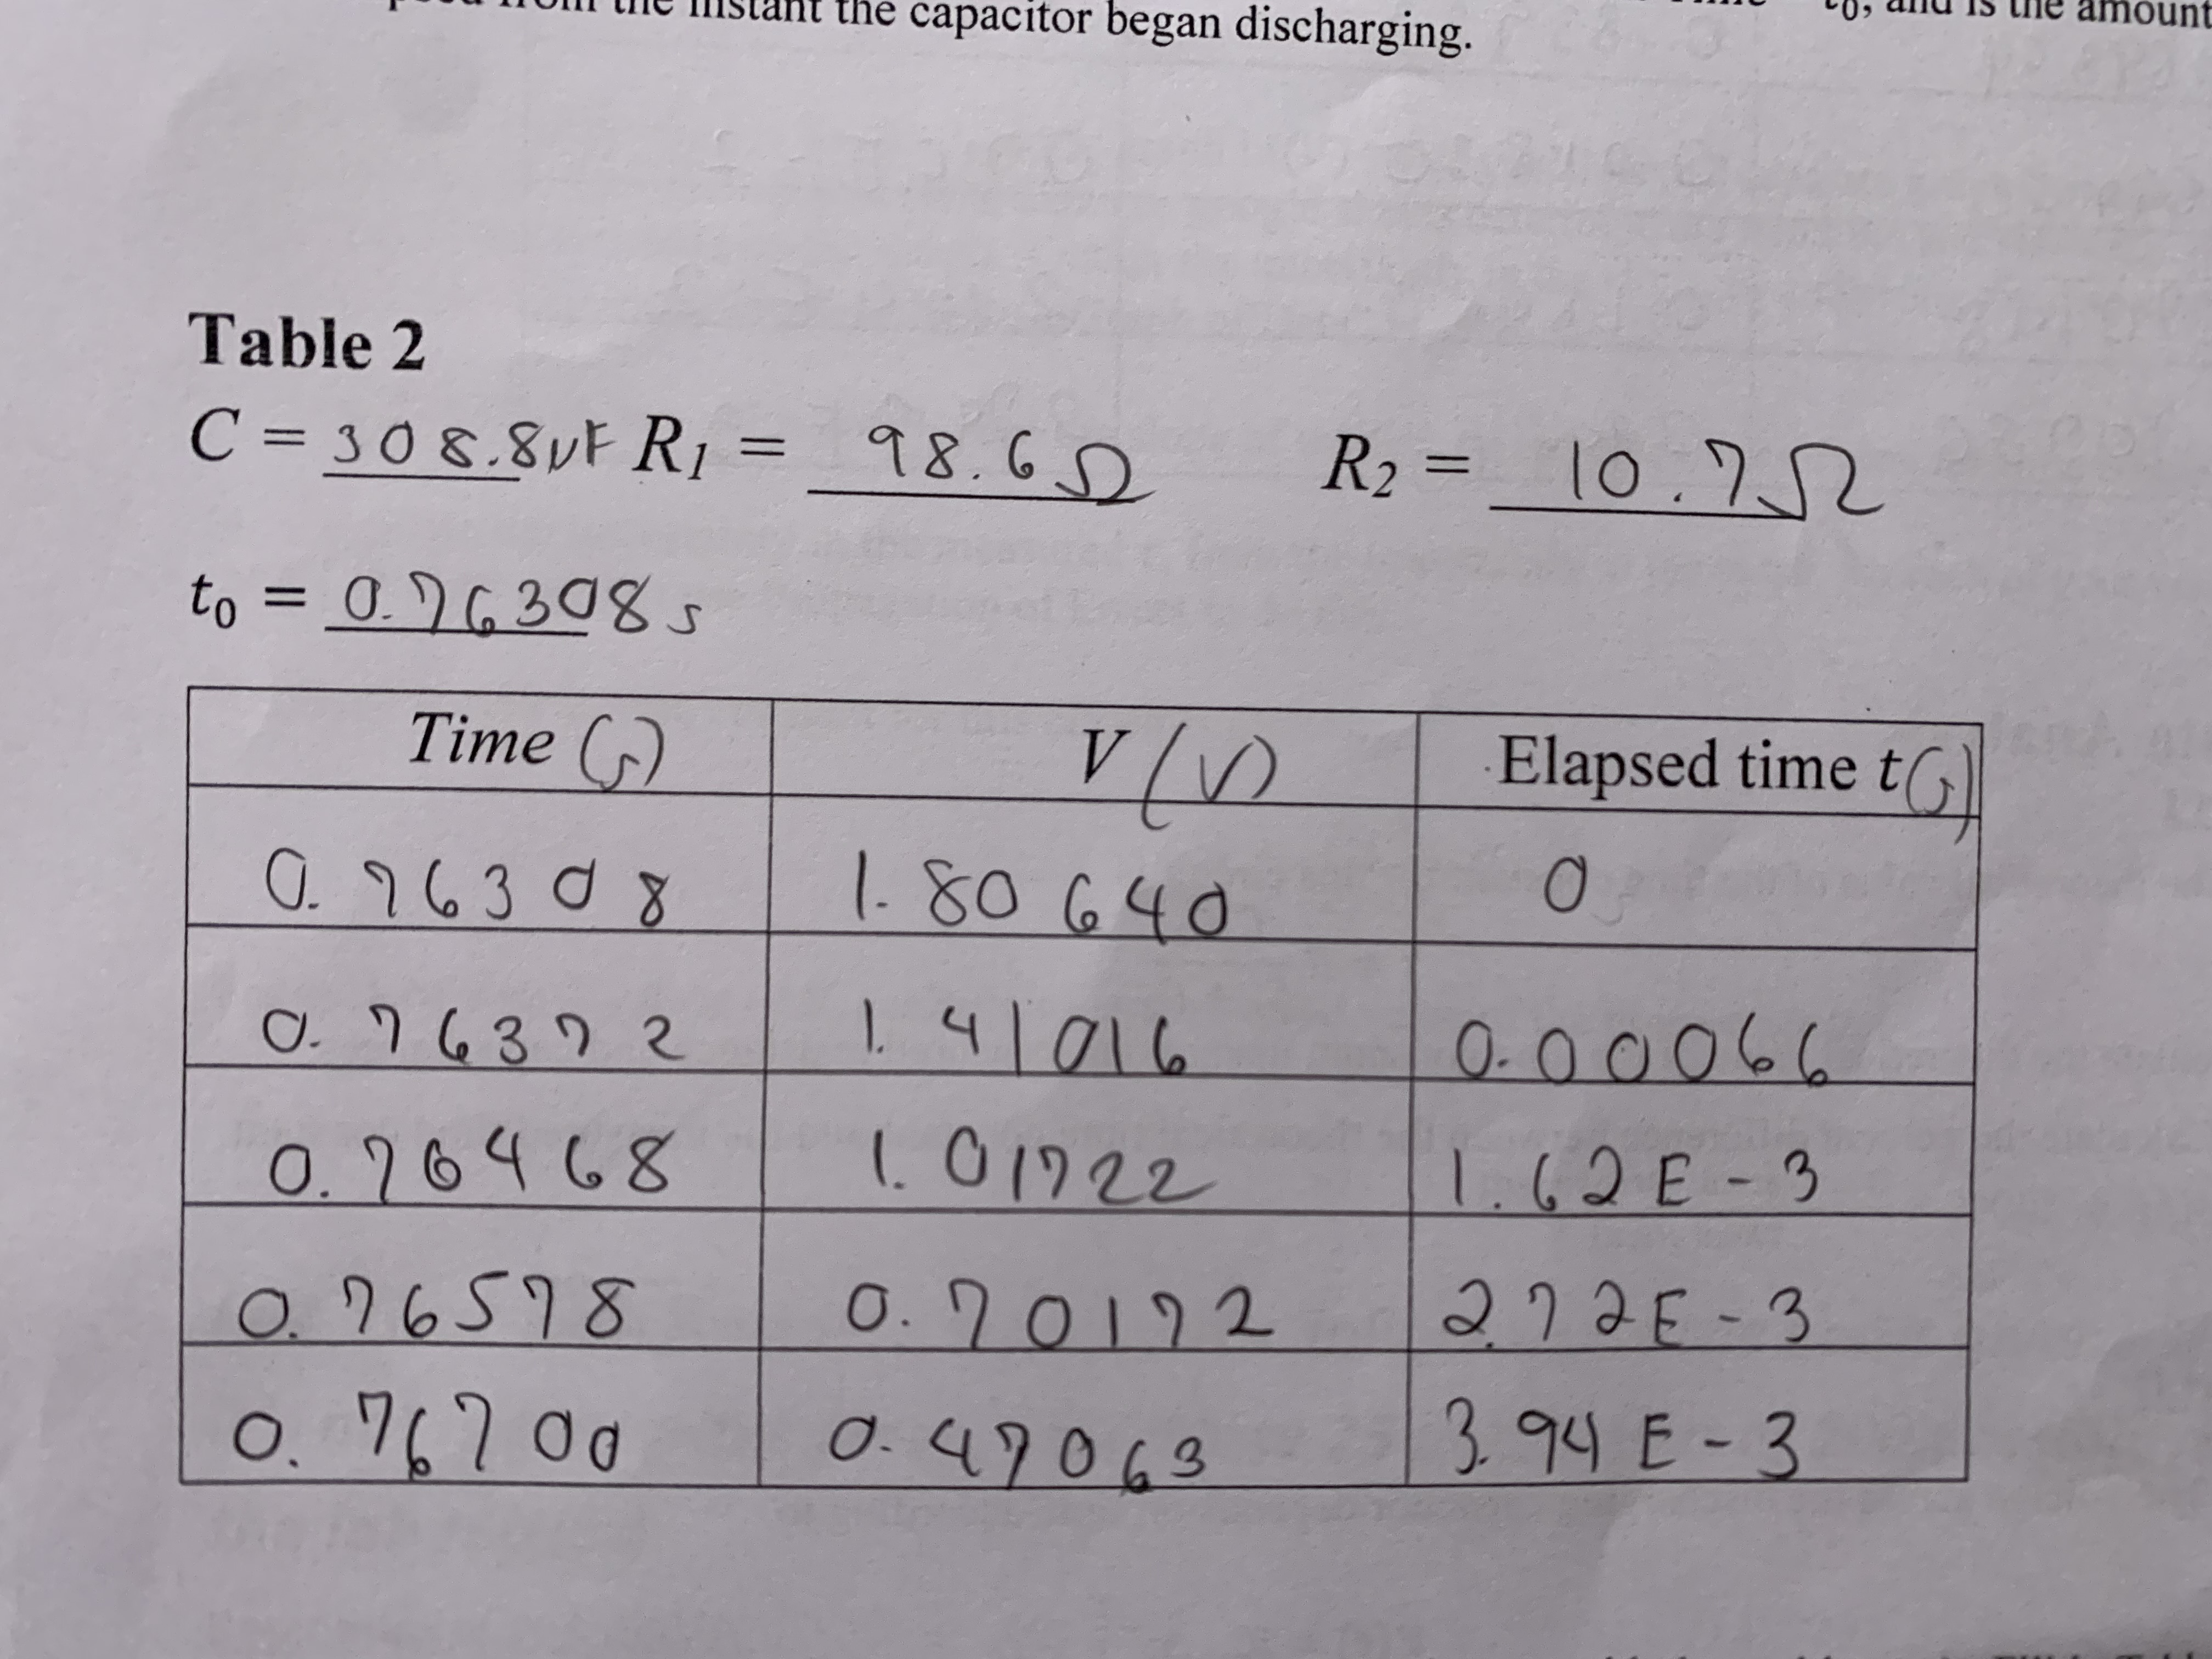 from the instant the capacitor began discharging.
t0, and is the amount
Table 2
C = 308.8μF R1 = 98.6Ω R2 = 10.7Ω
t0 = 0.76308 s
Time (s) V (V) Elapsed time t(s)
0.76308 1.80640 0
0.76372 1.41016 0.00066
0.76468 1.01722 1.62E-3
0.76578 0.70172 2.72E-3
0.76700 0.47063 3.94E-3